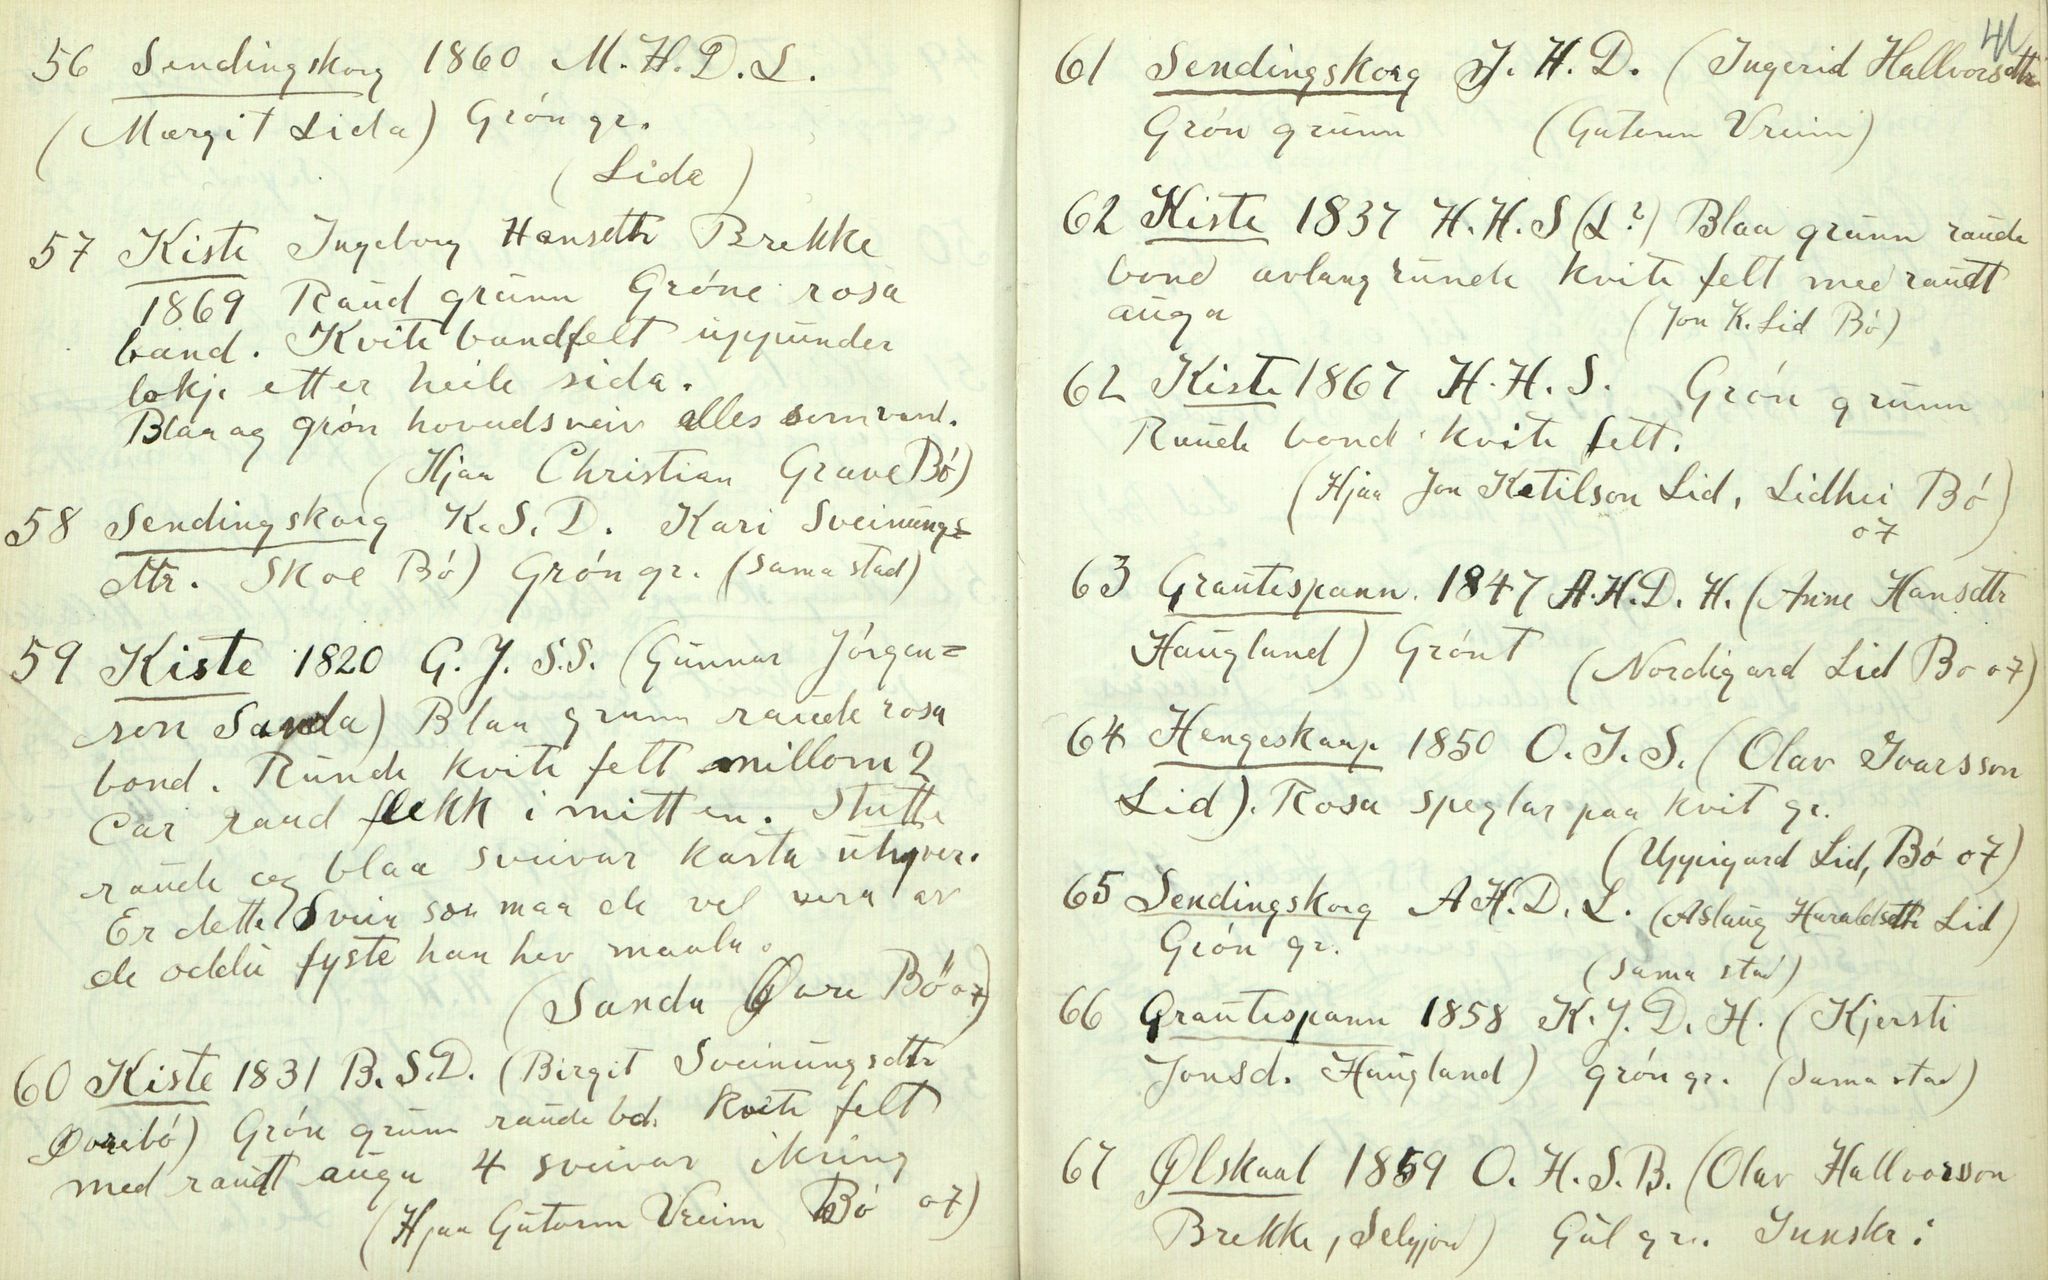 56 Sendingskorg 1860 M. H. D. L.
(Margit Lida) Grón gr.
(Lida)
57 Kiste Ingeborg Hansdtr Brekke
1869 Raud grunn Gróne rosa
band. Kvite bandfelt uppunder
lokje etter heile sida.
Blaa og grón hovudsveiv alles somvand.
(Hjaa Christian Grave Bó)
58 Sendingskorg K. S. D. Kari Sveinungs=
dtr. Skoe Bó) Gróngr. (sama stad)
59 Kiste 1820 G. J. S. S. (Gunnar Jórgen=
son Sanda) Blaa grunn raude rosa
bond. Runde kvite felt millom 2
car raud flekk i mitten. Stutte
raude og blaa sveivar kasta
Er dette Svein son maa de vel vera av
de oddu fyste han hev maala.
(Sanda Øvre Bö 07)
60 Kiste 1831 B. S. D. (Birgit Sveinungsdtr
Øvrebó) Grón grunn raude bd. kvite felt
med raudt auga 4 sveivar ikring
(Hjaa Gutorm Vreim Bó 07)
41
61 Sendingskorg J. H. D. (Ingerid Hallvorsdtr
Grón grunn (Gutorm Vreim)
62 Kiste 1837 H. H. S (L?) Blaa grunn raude
bond avlang runde kvite felt med raudt
auga (Jon K. Lid Bó)
62 Kiste 1867 H. H. S. Grón grunn
Raude bond kvite felt.
(Hjaa Jon Ketilson Lid, Lidhei Bó
07)
63 Grautespann. 1847 A. H. D. H. (Anne Hansdtr
Haugland) Grónt (Nordigard Lid Bo 07)
64 Hengeskaap 1850 O. I. S. (Olav Ivarsson
Lid). Rosa speglar paa kvit gr.
(Uppigard Lid, Bó 07)
65 Sendingskorg A H. D. L. (Aslaug Haraldsdtr Lid)
Grón gr.
(sama stad)
66 Grautespann 1858 K. J. D. H. (Kjersti
Jonsd. Haugland) grón gr. (sama stad)
67 Ølskaal 1859 O. H. S. B. (Olav Hallvorsson
Brekke, Selgjord) Gul gr. Innskr: